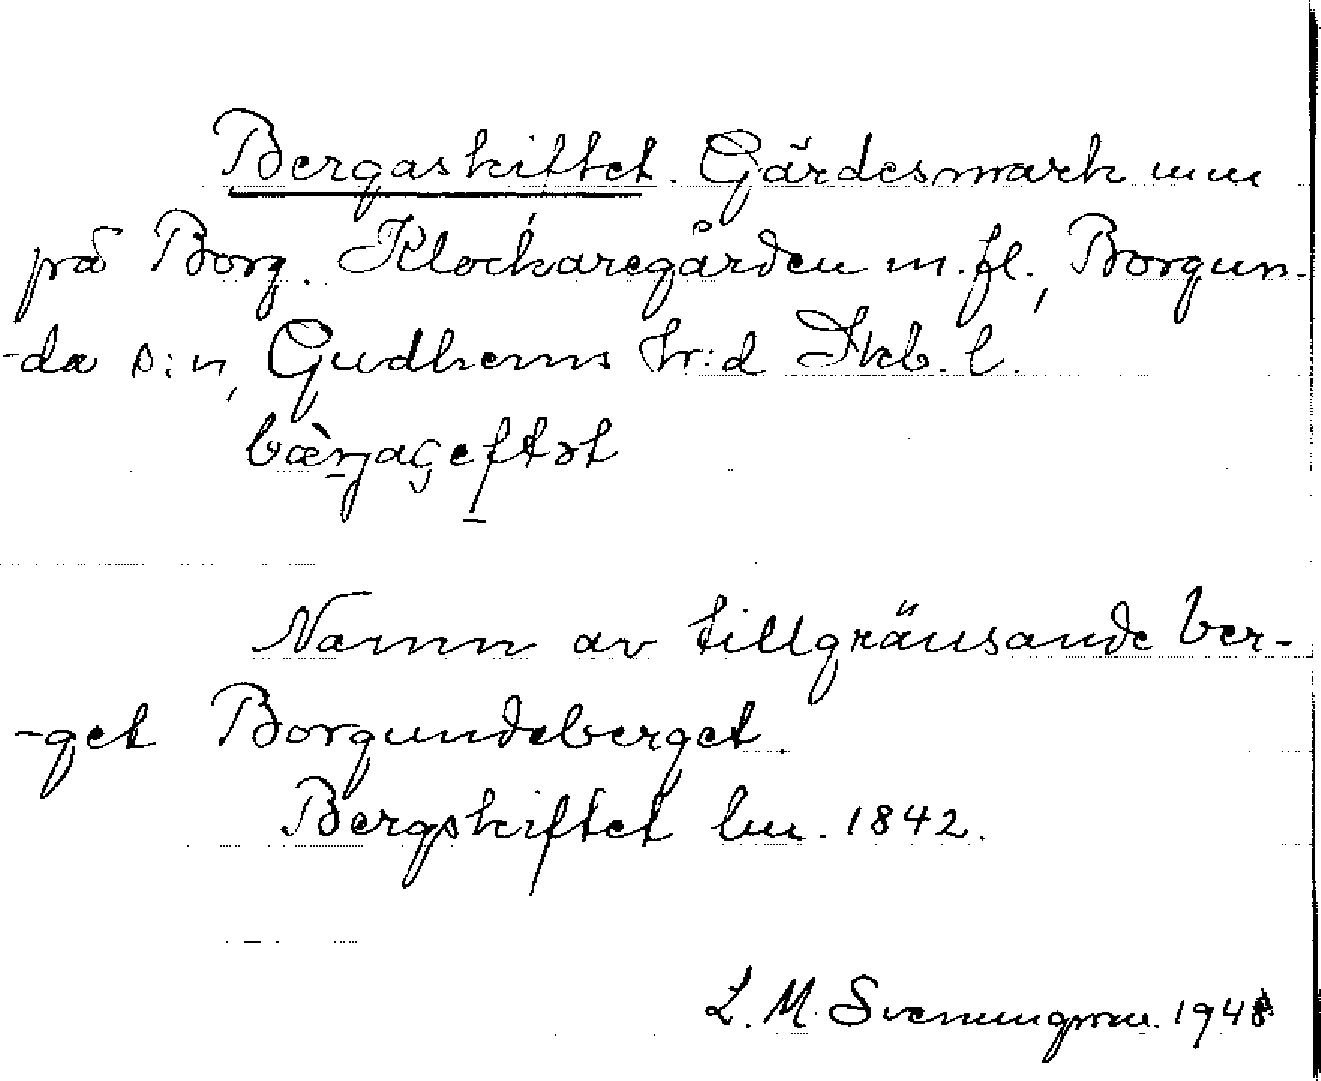 Bergaskiftet. Gärdesmark mm
på Borg. Klockaregården m.fl., Borgun-
-da s:n, Gudhems hr:d Skb. l.
bæ̀rjaςeftət
Namn av tillgränsande ber-
-get Borgundaberget.
Bergskiftet lm. 1842.
L. M. Svenungsson. 1948